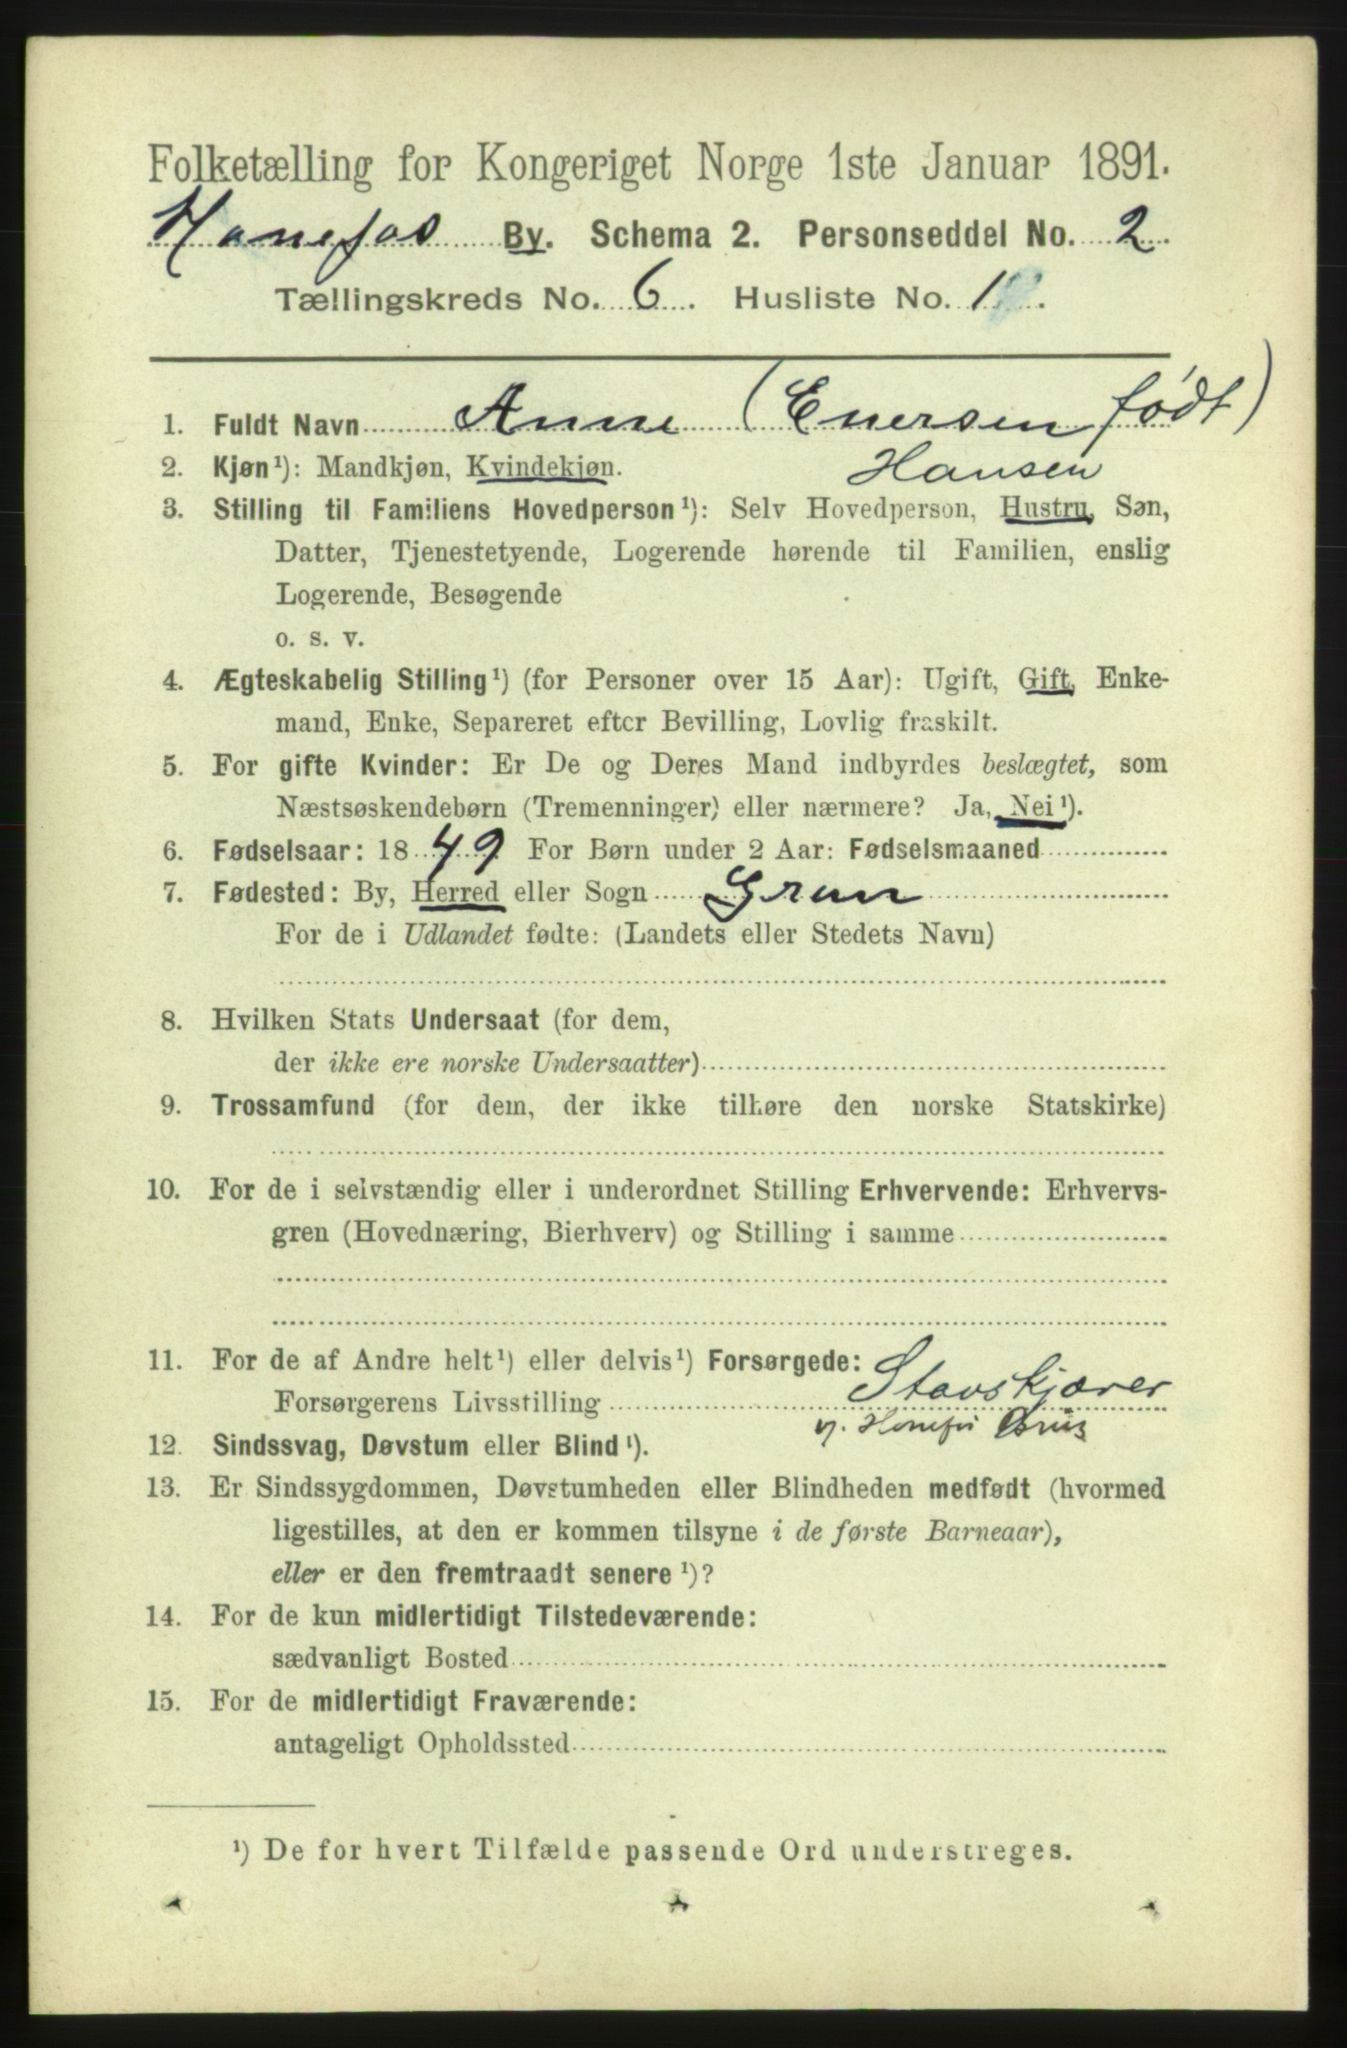 Folketælling for Kongeriget Norge 1ste Januar 1891.
Hønefos By. Schema 2. Personseddel No. 2.
Tællingskreds No. 6. Husliste No. 1.
1. Fuldt Navn Anne (Enersen født)
Hansen
2. Kjøn¹): Mandkjøn, Kvindekjøn.
3. Stilling til Familiens Hovedperson¹): Selv Hovedperson, Hustru, Søn,
Datter, Tjenestetyende, Logerende hørende til Familien, enslig
Logerende, Besøgende
o. s. v.
4. Ægteskabelig Stilling¹) (for Personer over 15 Aar): Ugift, Gift, Enke-
mand, Enke, Separeret efter Bevilling, Lovlig fraskilt.
5. For gifte Kvinder: Er De og Deres Mand indbyrdes beslægtet, som
Næstsøskendebørn (Tremenninger) eller nærmere? Ja, Nei¹).
6. Fødselsaar: 1849 For Børn under 2 Aar: Fødselsmaaned
7. Fødested: By, Herred eller Sogn Gran
For de i Udlandet fødte: (Landets eller Stedets Navn)
8. Hvilken Stats Undersaat (for dem,
der ikke ere norske Undersaatter)
9. Trossamfund (for dem, der ikke tilhøre den norske Statskirke)
10. For de i selvstændig eller i underordnet Stilling Erhvervende: Erhvervs-
gren (Hovednæring, Bierhverv) og Stilling i samme
11. For de af Andre helt¹) eller delvis¹) Forsørgede:
Forsørgerens Livsstilling Stavskjærer
v. Hønefos Brug
12. Sindssvag, Døvstum eller Blind¹).
13. Er Sindssygdommen, Døvstumheden eller Blindheden medfødt (hvormed
ligestilles, at den er kommen tilsyne i de første Barneaar),
eller er den fremtraadt senere¹)?
14. For de kun midlertidigt Tilstedeværende:
sædvanligt Bosted
15. For de midlertidigt Fraværende:
antageligt Opholdssted
¹) De for hvert Tilfælde passende Ord understreges.